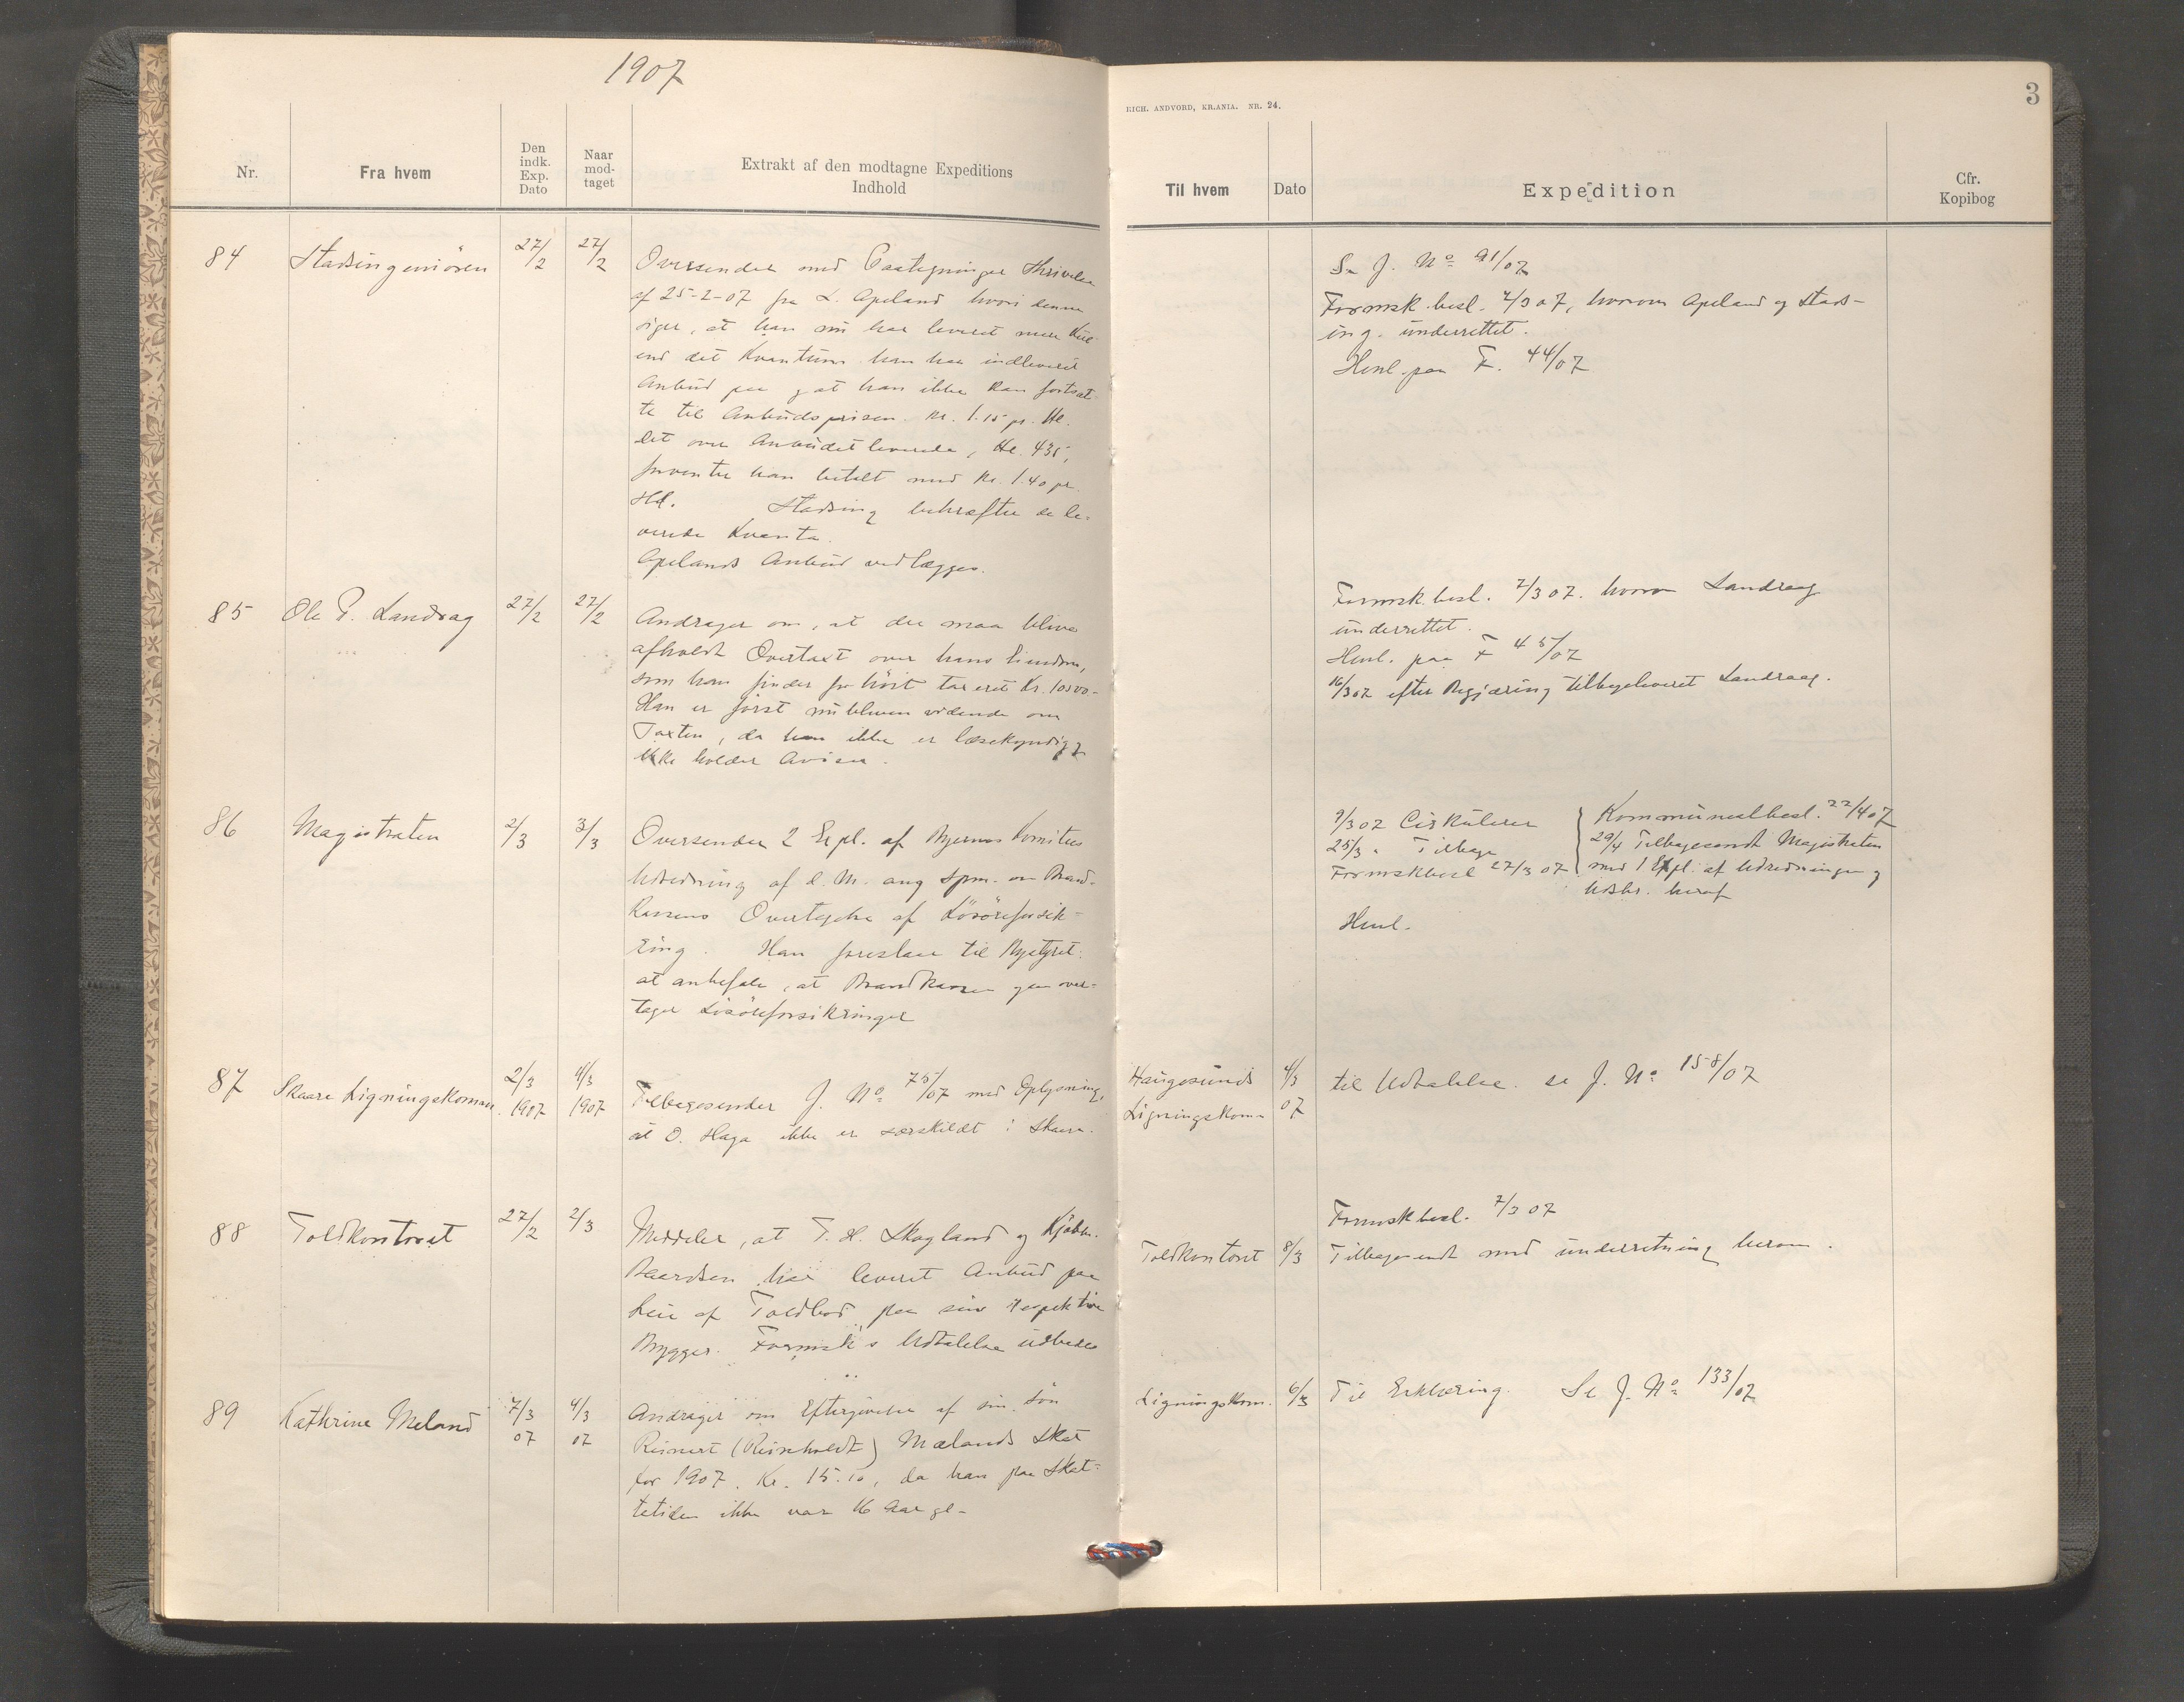 1907
Nr.
Fra hvem
Den indk. Exp. Dato
Naar mod-taget
Extrakt af den modtagne Expeditions
Indhold
84
Stadsingeniören
27/2
27/2
Oversender med Paategninger Skrivelse
af 25-2-07 fra L. Apeland hvori denne
siger, at han nu har leveret mere Kul
end det Kvantum han har indleveret
Anbud paa og at han ikke kan fortsæt-
te til Anbudsprisen Kr. 1.15 pr. Hl.
Det over Anbudet leverede, Hl. 435,
forventer han betalt med Kr. 1.40 pr.
Hl. Stadsing bekræfter de le-
verede Kvanta.
Apelands Anbud vedlægges.
85
Ole P. Landrag
27/2
27/2
Andrager om, at der maa blive
afholdt Overtaxt over hans Eiendom,
som han finder for höit taxeret Kr. 10500-
Han er först nu bleven vidende om
Taxten, da han ikke er læsekyndig og
ikke holder Aviser.
86
Magistraten
2/3
3/3
Oversender 2 Expl. af Byernes Komites
Udredning af d. M. ang Spm. om Brand-
kassens Overtagelse af Lösöreforsik-
ring. Han foreslaar til Bystyret
at anbefale, at Brandkassen gaar over-
tager Lösöreforsikringer
87
Skaare Ligningskomm.
2/3 1907
4/3 1907
Tilbagesender J. No 75/07 med Oplysning,
at O. Haga ikke er særskildt i Skaare.
88
Toldkontoret
27/2
2/3
Meddeler, at T. H. Skogland og Kjöbm.
Baardsen har leveret Anbud paa
Leie af Toldbod paa sine respektive
Brygger. Formsk's Udtalelse udbedes
89
Kathrine Meland
7/3 07
4/3 07
Andrager om Eftergivelse af sin Sön
Reinert (Reinholdt) Mælands Skat
for 1907. Kr. 15.10, da han paa Skat-
tetiden ikke var 16 Aar gl-
RICH. ANDVORD, KR.ANIA. NR. 24.
3
Til hvem
Dato
Expedition
Cfr.
Kopibog
Se J. No 91/07
Formsk.besl. 7/3 07, hvorom Apeland og Stads-
ing. underrettet.
Henl. paa F. 44/07
Formsk.besl. 7/3 07. hvorom Landraag
underrettet.
Henl. paa F 45/07
16/3 07 efter Begjæring tilbageleveret Landraag.
9/3 07 Cirkulerer
25/3 " Tilbage
Formskbesl 27/3 07
Kommunealbesl. 22/4 07
29/4 Tilbagesendt Magistraten
med 1 Expl. af Udredningen og
Udskr. heraf
Henl.
Haugesunds
Ligningskom-
4/3 07
til Udtalelse. se J. No 158/07
Formskbesl. 7/3 07
Toldkontoret
8/3
Tilbagesendt med underretning herom.
Ligningskom.
6/3
Til Erklæring. Se J. No 133/07